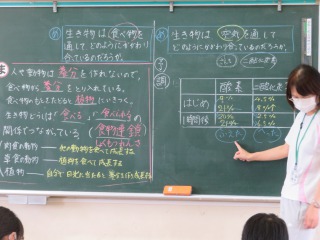 生き物は食べ物を
通して どのようにかかわり
合っているのだろうか。
ま
人や動物は養分を作れないので、
食べ物から養分をとり入れている。
食べ物のもとをたどると植物にいきつく。
生き物どうしは「食べる」「食べられる」の
関係でつながっている。(食物連鎖)
しょくもつれんさ
肉食の動物 — 他の動物を食べて成長する
草食の動物 — 植物を食べて成長する
植物 — 自分で日光に当たると養分を作り成長する
生き物は空気を通して
どのようにかかわり合っているのだろうか。
予
調
酸素
二酸化炭素
はじめ
1時間後
ふえた
へった